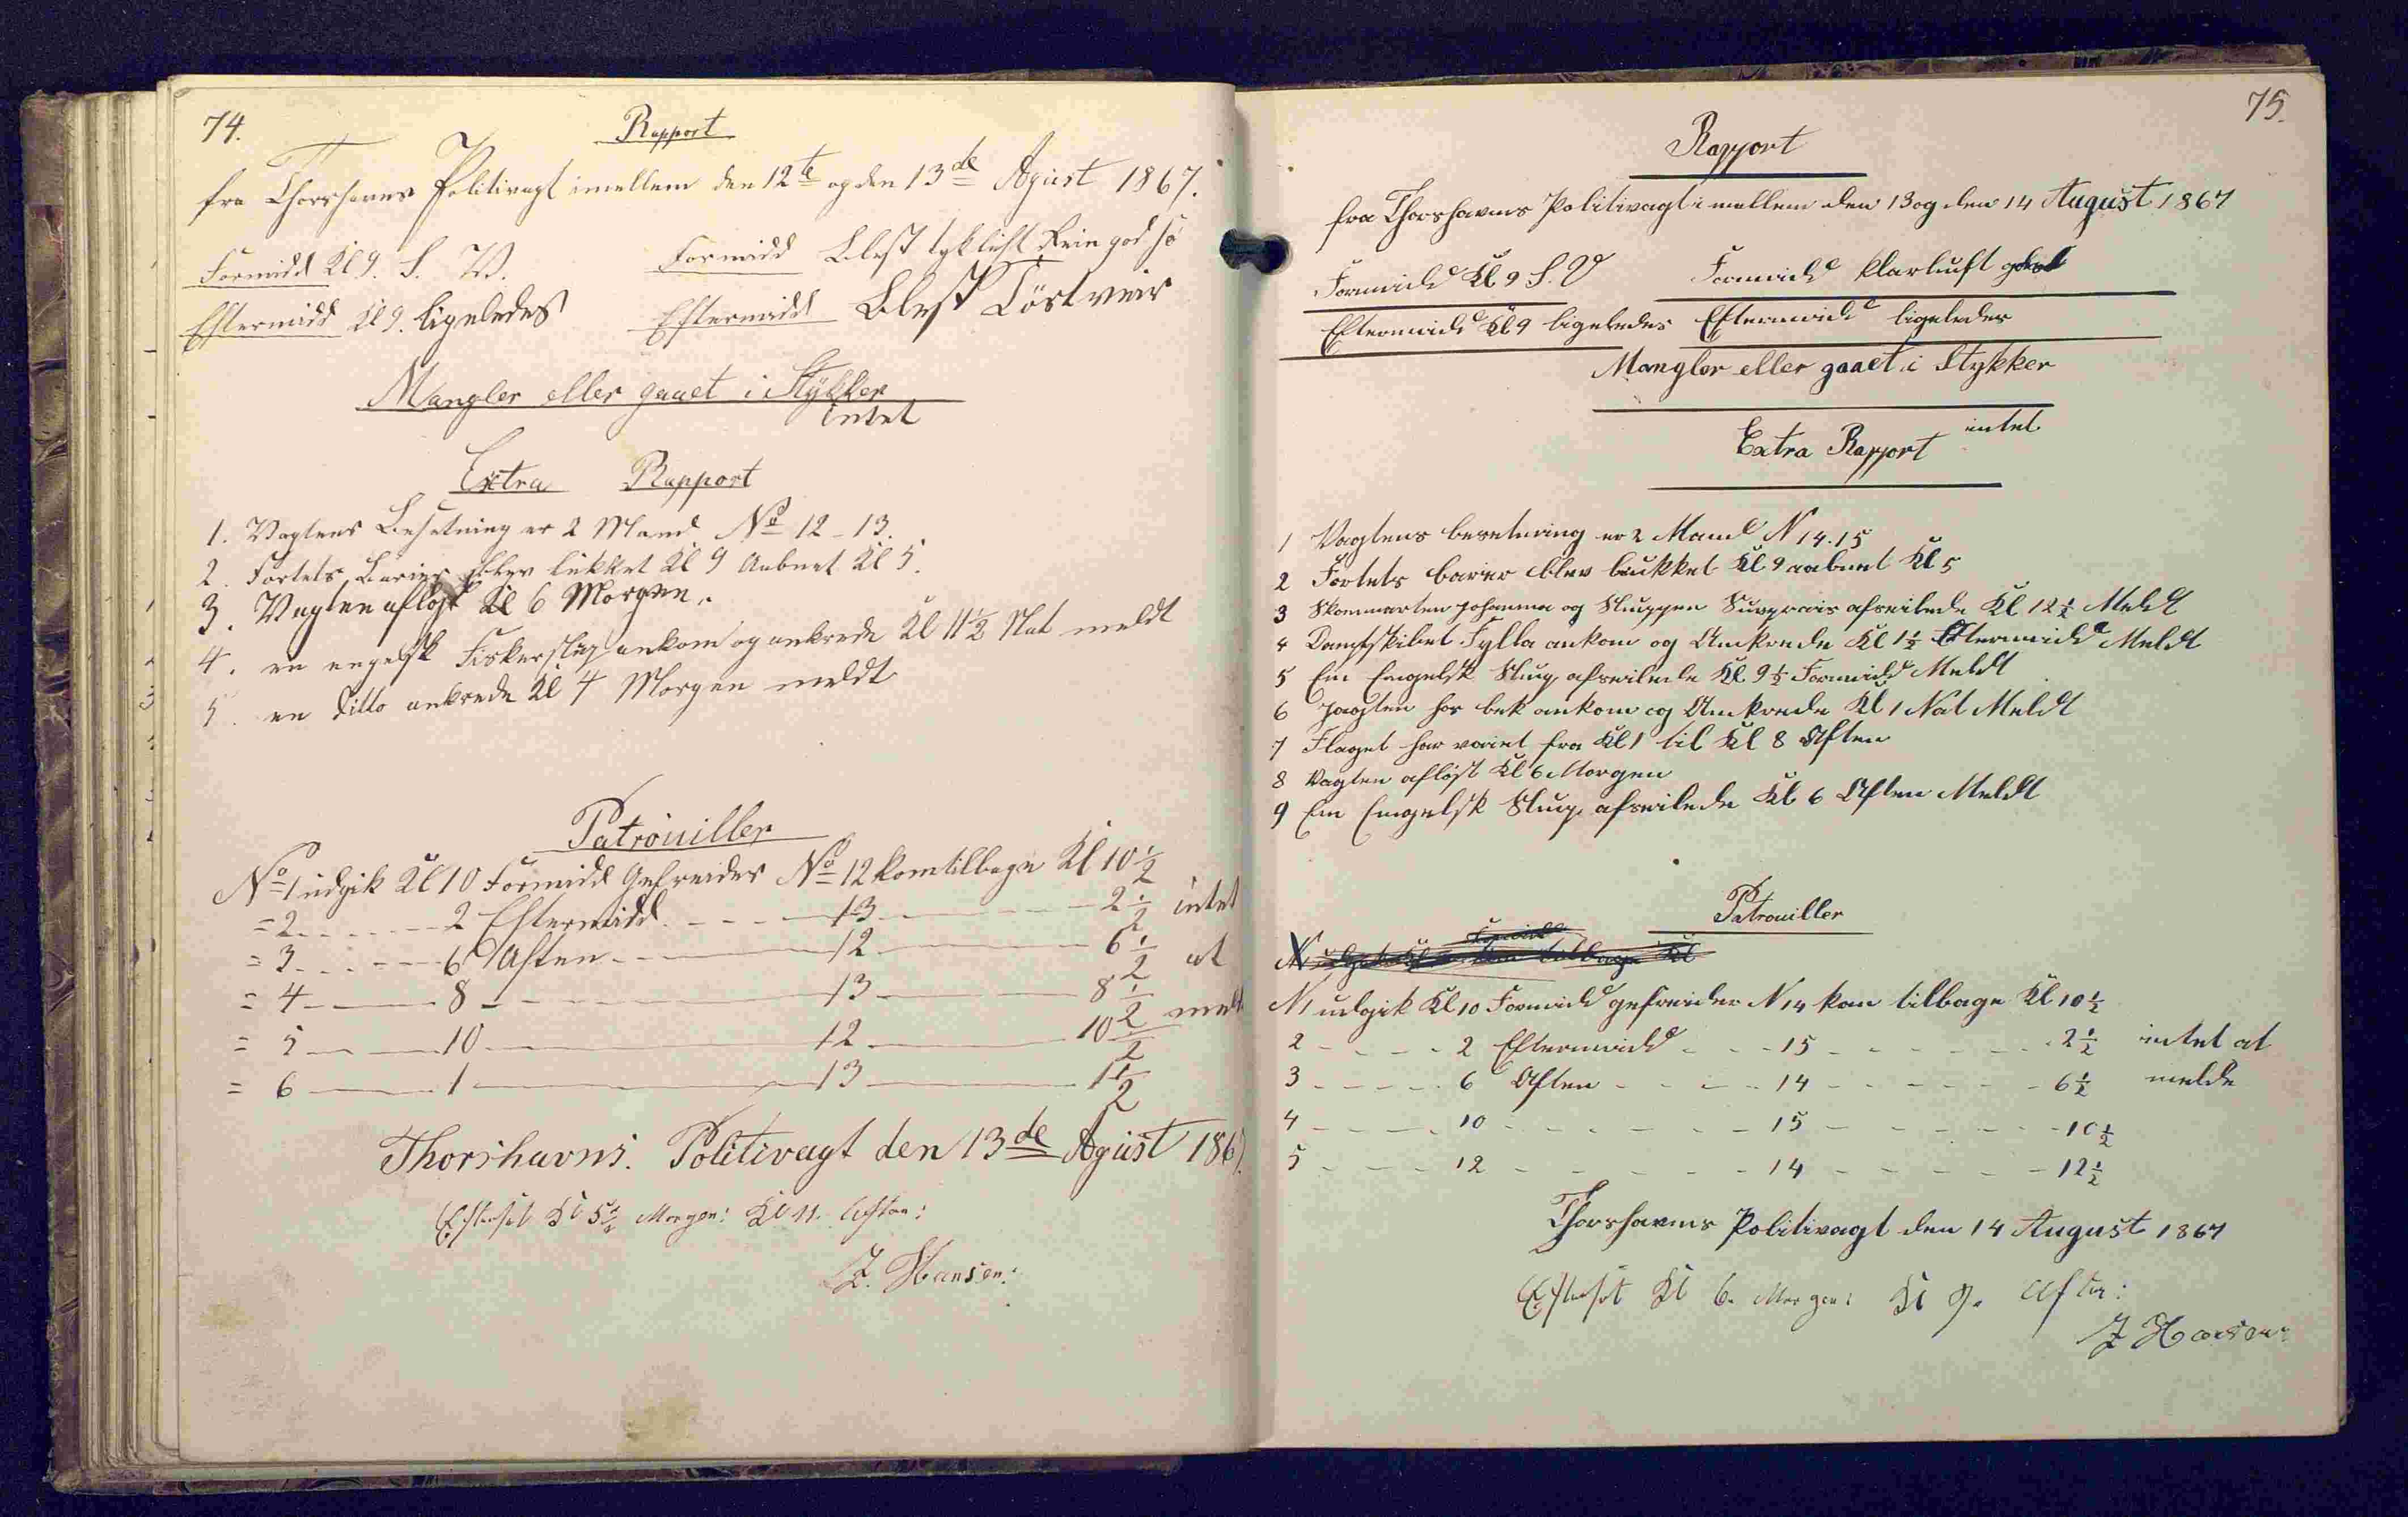 74.
Rapport
fra Thorshavns Politivagt imellem den 12te og den 13de Agust 1867.
Formidd Kl 9. S. V.
Formidd Blest tyk luft Rein god sö
Eftermidd Kl 9. ligeledes
Eftermidd Blest Törtveir
Mangler eller gaaet i Stykker
intet
Extra Rapport
1. Vagtens Besetning er 2 Mand No 12-13.
2. Fortets Barier blev lukket Kl 9 Aabnet Kl 5.
3. Vagten aflöst Kl 6 Morgen.
4. en engelsk Fiskerslup ankom og ankrede Kl 11 1/2 Nat meldt
5. en Ditto ankrede Kl 4 Morgen meldt
Patrouiller
No 1 udgik Kl 10 Formidd Gefreider No 12 kom tilbage Kl 10 1/2
= 2 - - - 2 Eftermidd - - - 13 - - - 2 1/2 intet
= 3 - - - 6 Aften - - - 12 - - - 6 1/2 at
= 4 - - - 8 - - - 13 - - - 8 1/2
= 5 - - - 10 - - - 12 - - - 10 1/2 meld
= 6 - - - 1 - - - 13 - - - 1 1/2
Thorshavns. Politivagt den 13de Agust 1867.
Efterset Kl 5 1/2 Morgen: Kl 11. Aften:
Z. Hansen:
75.
Rapport
fra Thorshavns Politivagt i mellem den 13 og den 14 August 1867
Formidd Kl 9 S. V
Formidd klarluft
Eftermidd Kl 9 ligeledes
Eftermidd ligeledes
Mangler eller gaaet i Stykker
intet
Extra Rapport
1 Vagtens besetning er 2 Mand N 14.15
2 Fortets barier blev lukket Kl 9 aabnet Kl 5
3 Skonnerten Johanna og Sluppen afseilede Kl 12 1/2 Meldt
4 Dampskibet Fylla ankom og Ankrede Kl 1 1/2 Eftermidd Meldt
5 En Engelsk Slup afseilede Kl 9 1/2 Formidd Meldt
6 Jagten ankom og Ankrede Kl 1 Nat Meldt
7 Flaget har vaiet fra Kl 1 til Kl 8 Aften
8 Vagten aflöst Kl 6 Morgen
9 En Engelsk Slup afseilede Kl 6 Aften Meldt
Patrouiller
N 1 udgik Kl 10 Formidd gefreider N 14 kom tilbage Kl 10 1/2
2 - - - - 2 Eftermidd - - - 15 - - - - 2 1/2 intet at
3 - - - - 6 Aften - - - 14 - - - - 6 1/2 melde
4 - - - - 10 - - - - 15 - - - - 10 1/2
5 - - - - 12 - - - - 14 - - - - 12 1/2
Thorshavns Politivagt den 14 August 1867
Efterset Kl 6. Morgen: Kl 9. Aften:
Z Hansen